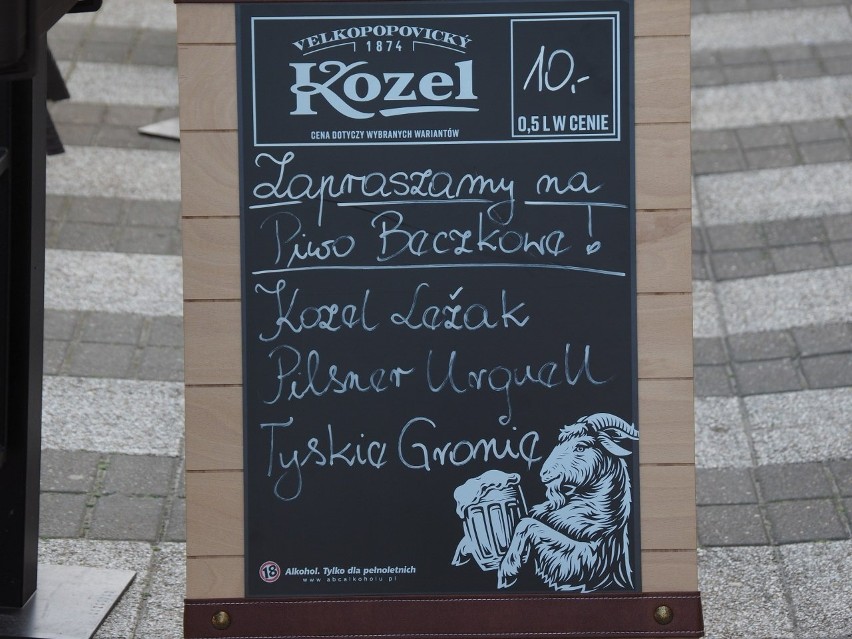 VELKOPOPOVICKÝ
1874
Kozel
CENA DOTYCZY WYBRANYCH WARIANTÓW
10,-
0,5 L W CENIE
Zapraszamy na
Piwo Beczkowe!
Kozel Ležak
Pilsner Urquell
Tyskie Gronie
18 Alkohol. Tylko dla pełnoletnich
www.abcalkoholu.pl